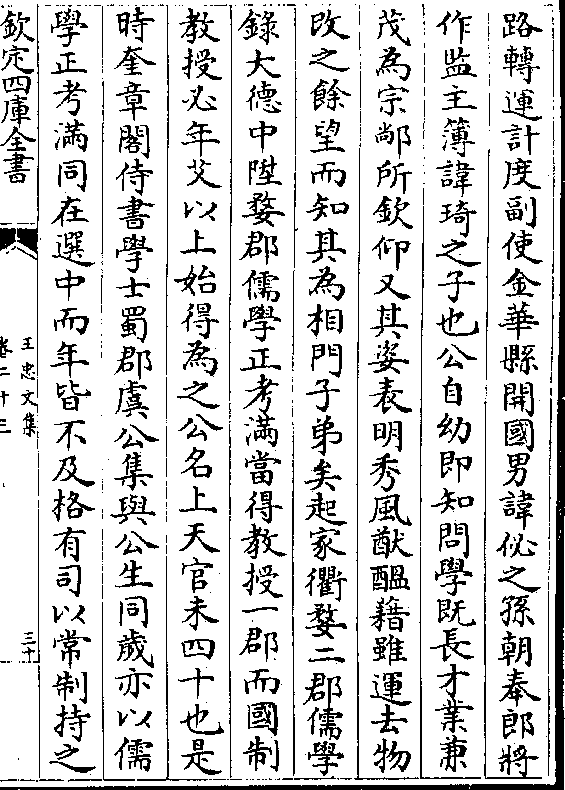 路轉運計度副使金華縣開國男諱佖之孫朝奉郎將
作監主簿諱琦之子也公自幼即知問學既長才業兼
茂為宗鄰所欽仰又其姿表明秀風猷醞藉雖運去物
改之餘望而知其為相門子弟矣起家衢婺二郡儒學
錄大德中陞婺郡儒學正考滿當得教授一郡而國制
教授必年艾以上始得為之公名上天官未四十也是
時奎章閣侍書學士蜀郡虞公集與公生同歲亦以儒
學正考滿同在選中而年皆不及格有司以常制持之
欽定四庫全書
王忠文集
卷二十三
三十